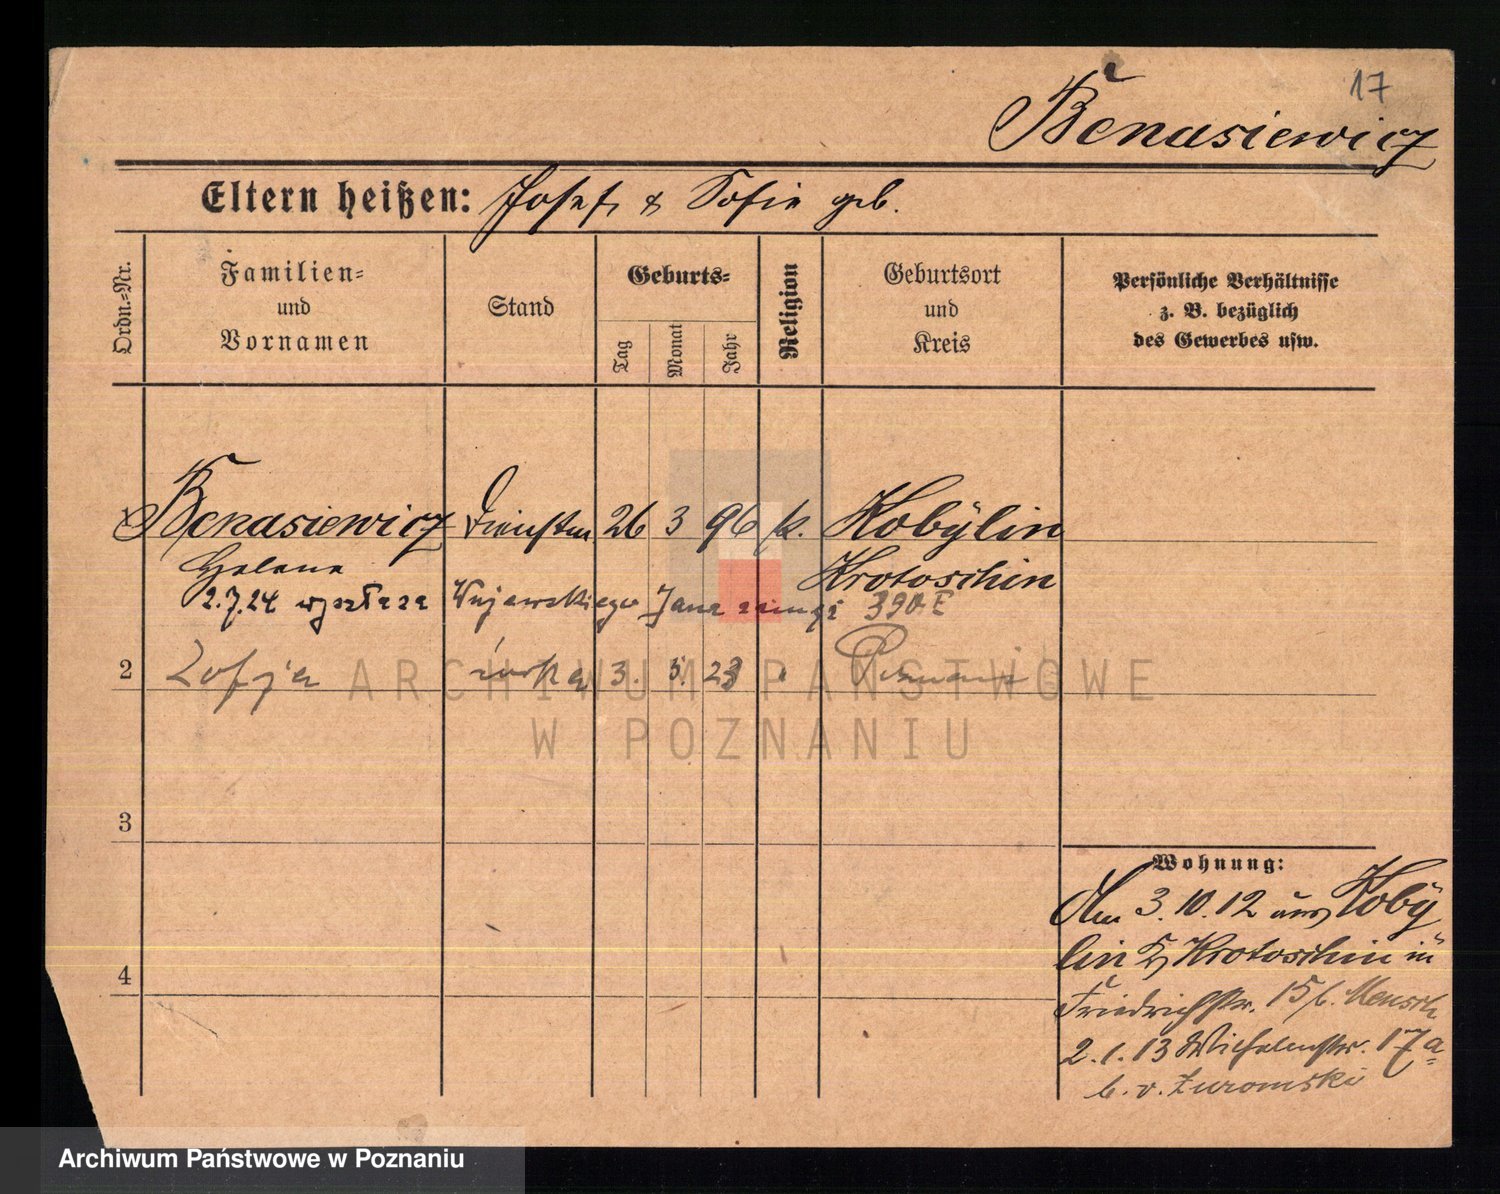 17
Benasiewicz
Eltern heißen: Josef & Sofie geb.
Ordn.=Nr.
Familien=
und
Vornamen
Stand
Geburts=
Tag
Monat
Jahr
Religion
Geburtsort
und
Kreis
Persönliche Verhältnisse
z. B. bezüglich
des Gewerbes usw.
1 Benasiewicz Dienstm 26 3 96 k. Kobylin
Helene Krotoschin
2.7.24 wyszła za Wujewskiego Jana 390 E
2 Zofja córka 3. 5. 23 Poznań
3
4
Wohnung:
Am 3.10.12 aus Koby
lin Kr Krotoschin in
Friedrichstr. 15 b. Mensch
2.1.13 Wilhelmstr. 17a
b. v. Zuromski
ARCHIWUM PAŃSTWOWE
W POZNANIU
Archiwum Państwowe w Poznaniu